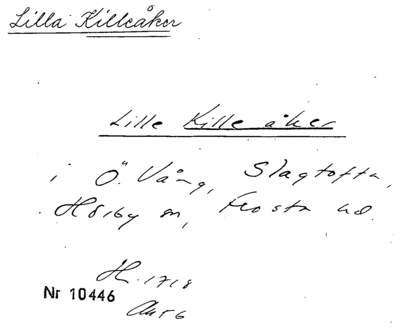 Lilla Killeåker
Lille Kille åker
i Ö. Vång, Slagtofta,
Hörby sn, Frosta hd.
H. 1718
Nr 10446